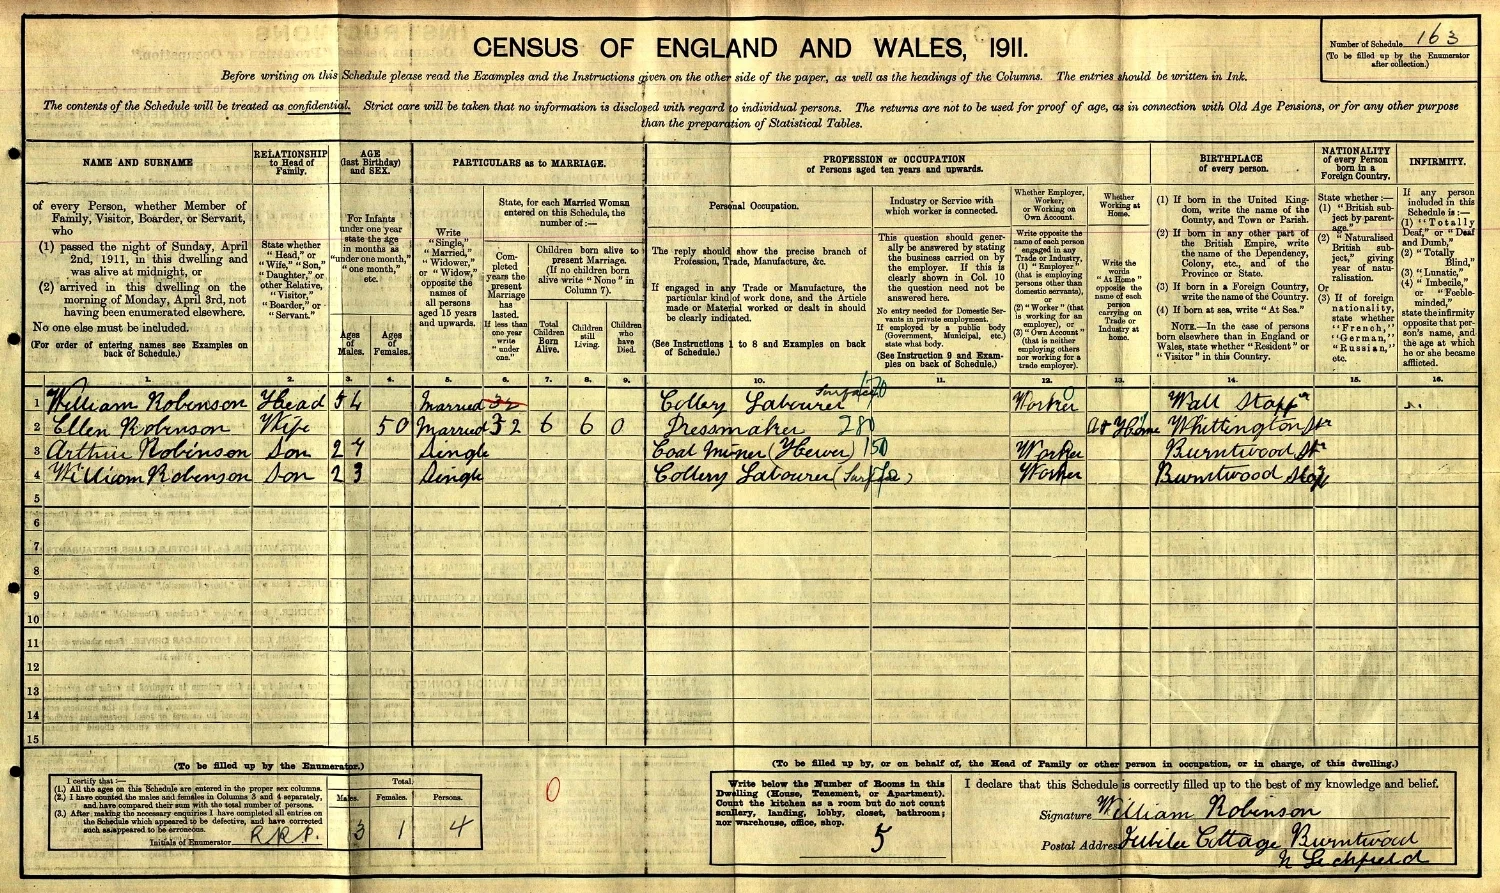 CENSUS OF ENGLAND AND WALES, 1911.
Number of Schedule 163
(To be filled up by the Enumerator
after collection.)
Before writing on this Schedule please read the Examples and the Instructions given on the other side of the paper, as well as the headings of the Columns. The entries should be written in Ink.
The contents of the Schedule will be treated as confidential. Strict care will be taken that no information is disclosed with regard to individual persons. The returns are not to be used for proof of age, as in connection with Old Age Pensions, or for any other purpose
than the preparation of Statistical Tables.
NAME AND SURNAME
of every Person, whether Member of
Family, Visitor, Boarder, or Servant,
who
(1) passed the night of Sunday, April
2nd, 1911, in this dwelling and
was alive at midnight, or
(2) arrived in this dwelling on the
morning of Monday, April 3rd, not
having been enumerated elsewhere.
No one else must be included.
(For order of entering names see Examples on
back of Schedule.)
RELATIONSHIP
to Head of
Family.
State whether
"Head," or
"Wife," "Son,"
"Daughter," or
other Relative,
"Visitor,"
"Boarder," or
"Servant."
AGE
(last Birthday)
and SEX.
For Infants
under one year
state the age
in months as
"under one month,"
"one month,"
etc.
Ages
of
Males.
Ages
of
Females.
PARTICULARS as to MARRIAGE.
Write
"Single,"
"Married,"
"Widower,"
or "Widow,"
opposite the
names of
all persons
aged 15 years
and upwards.
State, for each Married Woman
entered on this Schedule, the
number of :—
Com-
pleted
years the
present
Marriage
has
lasted.
If less
than
one year
write
"under
one."
Children born alive to
present Marriage.
(If no children born
alive write "None" in
Column 7).
Total
Children
Born
Alive.
Children
still
Living.
Children
who
have
Died.
PROFESSION or OCCUPATION
of Persons aged ten years and upwards.
Personal Occupation.
The reply should show the precise branch of
Profession, Trade, Manufacture, &c.
If engaged in any Trade or Manufacture, the
particular kind of work done, and the Article
made or Material worked or dealt in should
be clearly indicated.
(See Instructions 1 to 8 and Examples on back
of Schedule.)
Industry or Service with
which worker is connected.
This question should gener-
ally be answered by stating
the business carried on by
the employer. If this is
clearly shown in Col. 10
the question need not be
answered here.
No entry needed for Domestic Ser-
vants in private employment.
If employed by a public body
(Government, Municipal, etc.)
state what body.
(See Instruction 9 and Exam-
ples on back of Schedule.)
Whether Employer,
Worker,
or Working on
Own Account.
Write opposite the
name of each person
engaged in any
Trade or Industry,
(1) "Employer"
(that is employing
persons other than
domestic servants),
or
(2) "Worker" (that
is working for an
employer), or
(3) "Own Account"
(that is neither
employing others
nor working for a
trade employer).
Whether
Working at
Home.
Write the
words
"At Home"
opposite the
name of each
person
carrying on
Trade or
Industry at
home.
BIRTHPLACE
of every person.
(1) If born in the United King-
dom, write the name of the
County, and Town or Parish.
(2) If born in any other part of
the British Empire, write
the name of the Dependency,
Colony, etc., and of the
Province or State.
(3) If born in a Foreign Country,
write the name of the Country.
(4) If born at sea, write "At Sea."
NOTE.—In the case of persons
born elsewhere than in England or
Wales, state whether "Resident" or
"Visitor" in this Country.
NATIONALITY
of every Person
born in a
Foreign Country.
State whether :—
(1) "British sub-
ject by parent-
age,"
(2) "Naturalised
British sub-
ject," giving
year of natu-
ralisation.
Or
(3) If of foreign
nationality,
state whether
"French,"
"German,"
"Russian,"
etc.
INFIRMITY.
If any person
included in this
Schedule is :—
(1) "Totally
Deaf," or "Deaf
and Dumb,"
(2) "Totally
Blind,"
(3) "Lunatic,"
(4) "Imbecile,"
or "Feeble-
minded,"
state the infirmity
opposite that per-
son's name, and
the age at which
he or she became
afflicted.
1. 2. 3. 4. 5. 6. 7. 8. 9. 10. 11. 12. 13. 14. 15. 16.
1 William Robinson Head 54 Married 32 Collery Labourer Surface Worker Wall Staff
2 Ellen Robinson Wife 50 Married 32 6 6 0 Dressmaker 280 At Home Whittington
3 Arthur Robinson Son 27 Single Coal Miner (Hewer) 150 Worker Burntwood
4 William Robinson Son 23 Single Collery Labourer (Surface) Worker Burntwood Staff
5
6
7
8
9
10
11
12
13
14
15
(To be filled up by the Enumerator.)
I certify that :—
(1.) All the ages on this Schedule are entered in the proper sex columns.
(2.) I have counted the males and females in Columns 3 and 4 separately,
and have compared their sum with the total number of persons.
(3.) After making the necessary enquiries I have completed all entries on
the Schedule which appeared to be defective, and have corrected
such as appeared to be erroneous.
Initials of Enumerator R.R.P.
Total.
Males. Females. Persons.
3 1 4
0
(To be filled up by, or on behalf of, the Head of Family or other person in occupation, or in charge, of this dwelling.)
Write below the Number of Rooms in this
Dwelling (House, Tenement, or Apartment).
Count the kitchen as a room but do not count
scullery, landing, lobby, closet, bathroom;
nor warehouse, office, shop.
5
I declare that this Schedule is correctly filled up to the best of my knowledge and belief.
Signature William Robinson
Postal Address Jubilee Cottage Burntwood
N Lichfield